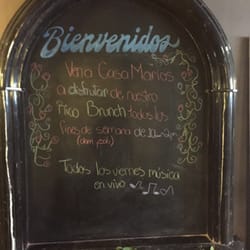 Bienvenidos
Ven a Casa Marías
a disfrutar de nuestro
Rico Brunch todos los
fines de semana de 10am-2pm
(dom y sab)
Todos los viernes música
en vivo